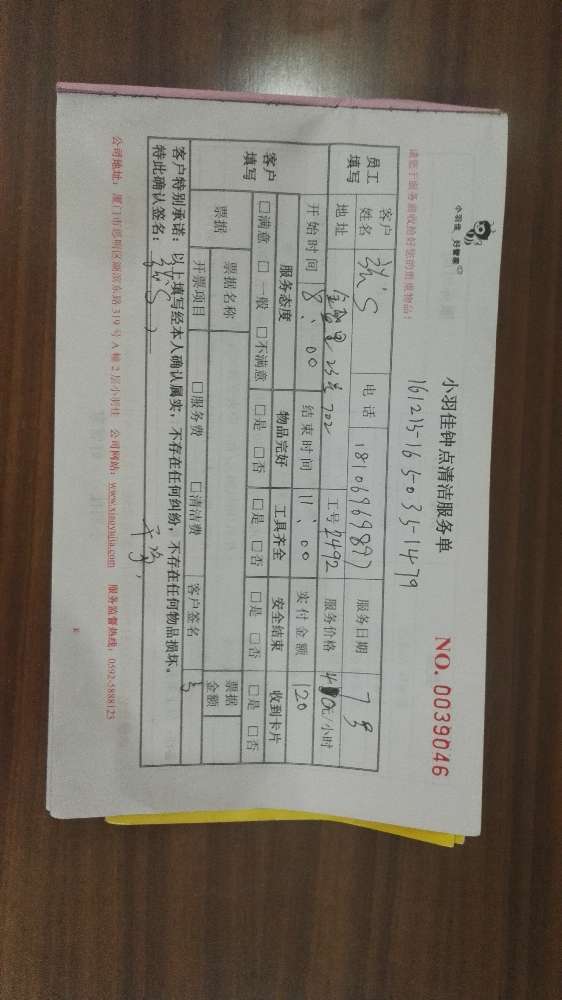 小羽佳 好管家
小羽佳钟点清洁服务单
NO. 0039046
161213-165035-1479
请您于服务前收拾好您的贵重物品!
员工填写
客户姓名
电话 18106969897
服务日期 7号
地址 25号702
工号 2492
服务价格 40元/小时
开始时间 8:00
结束时间 11:00
实付金额 120
客户填写
服务态度 物品完好 工具齐全 安全结束 收到卡片
□满意 □一般 □不满意 □是 □否 □是 □否 □是 □否 □是 □否
票据
票据名称
票据金额
开票项目 □服务费 □清洁费 客户签名
客户特别承诺:以上填写经本人确认属实,不存在任何纠纷,不存在任何物品损坏。
特此确认签名:
公司地址:厦门市思明区湖滨东路319号A幢2层小羽佳 公司网站:www.xiaoyujia.com 服务监督热线:0592-5888123